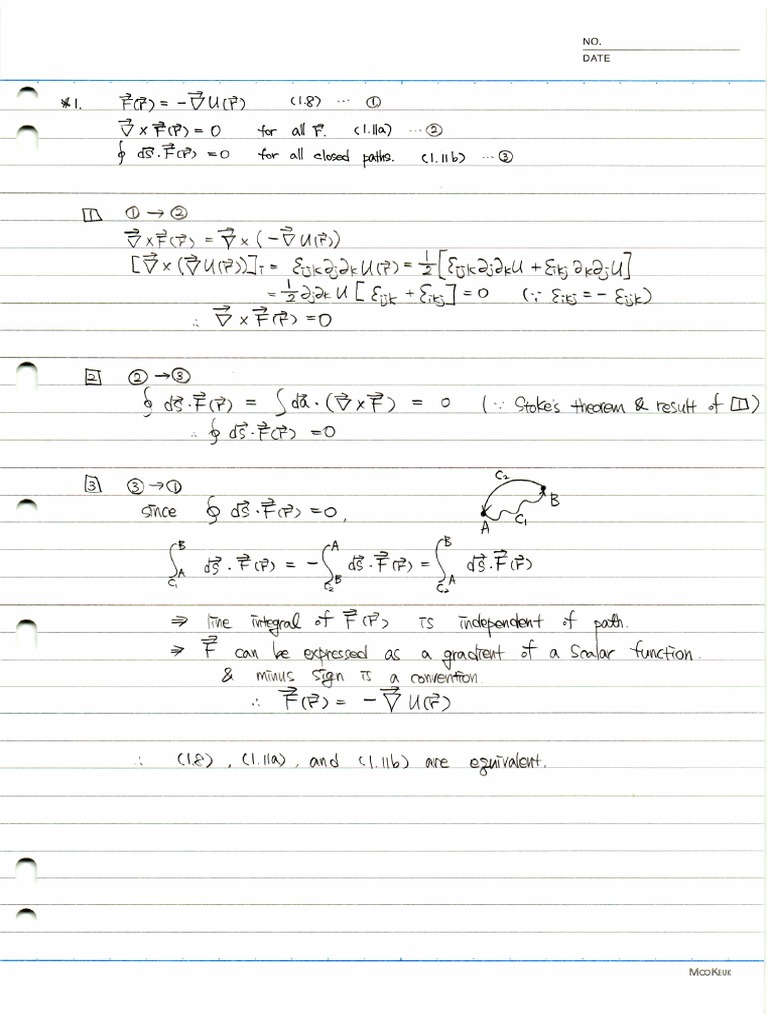 NO.
DATE
*1. F⃗(r⃗) = -∇⃗U(r⃗) (1.8) ... ①
∇⃗ × F⃗(r⃗) = 0 for all r⃗. (1.11a) ... ②
∮ ds⃗·F⃗(r⃗) = 0 for all closed paths. (1.11b) ... ③
[1] ① → ②
∇⃗×F⃗(r⃗) = ∇⃗ × (-∇⃗U(r⃗))
[∇⃗ × (∇⃗U(r⃗))]ᵢ = εᵢⱼₖ∂ⱼ∂ₖU(r⃗) = 1/2 [εᵢⱼₖ∂ⱼ∂ₖU + εᵢₖⱼ∂ₖ∂ⱼU]
= 1/2 ∂ⱼ∂ₖU [εᵢⱼₖ + εᵢₖⱼ] = 0 (∵ εᵢₖⱼ = - εᵢⱼₖ)
∴ ∇⃗ × F⃗(r⃗) = 0
[2] ② → ③
∮ ds⃗·F⃗(r⃗) = ∫ da⃗ · (∇⃗ × F⃗) = 0 (∵ Stoke's theorem & result of [1])
∴ ∮ ds⃗·F⃗(r⃗) = 0
[3] ③ → ①
since ∮ ds⃗·F⃗(r⃗) = 0,
C₂
B
A C₁
∫_{C₁ A}^{B} ds⃗·F⃗(r⃗) = -∫_{C₂ B}^{A} ds⃗·F⃗(r⃗) = ∫_{C₂ A}^{B} ds⃗·F⃗(r⃗)
⇒ line integral of F⃗(r⃗) is independent of path.
⇒ F⃗ can be expressed as a gradient of a scalar function.
& minus sign is a convention.
∴ F⃗(r⃗) = -∇⃗U(r⃗)
∴ (1.8), (1.11a), and (1.11b) are equivalent.
MOOKEUK